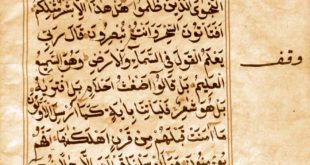 النَّجْوَى الَّذِينَ ظَلَمُوا هَلْ هَذَا إِلَّا بَشَرٌ مِثْلُكُمْ
أَفَتَأْتُونَ السِّحْرَ وَأَنْتُمْ تُبْصِرُونَ قَالَ رَبِّي
يَعْلَمُ الْقَوْلَ فِي السَّمَاءِ وَالْأَرْضِ وَهُوَ السَّمِيعُ
الْعَلِيمُ بَلْ قَالُوا أَضْغَثُ أَحْلَامٍ بَلِ افْتَرَيهُ
بَلْ هُوَ شَاعِرٌ فَلْيَأْتِنَا بِآيَةٍ كَمَا أُرْسِلَ الْأَوَّلُونَ
مَا آمَنَتْ قَبْلَهُمْ مِنْ قَرْيَةٍ أَهْلَكْنَهَا أَفَهُمْ
وقف